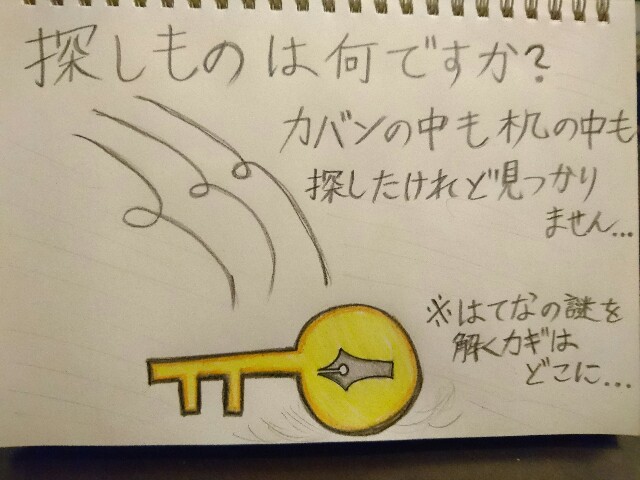 探しものは何ですか?
カバンの中も机の中も
探したけれど見つかり
ません...
※はてなの謎を
解くカギは
どこに...